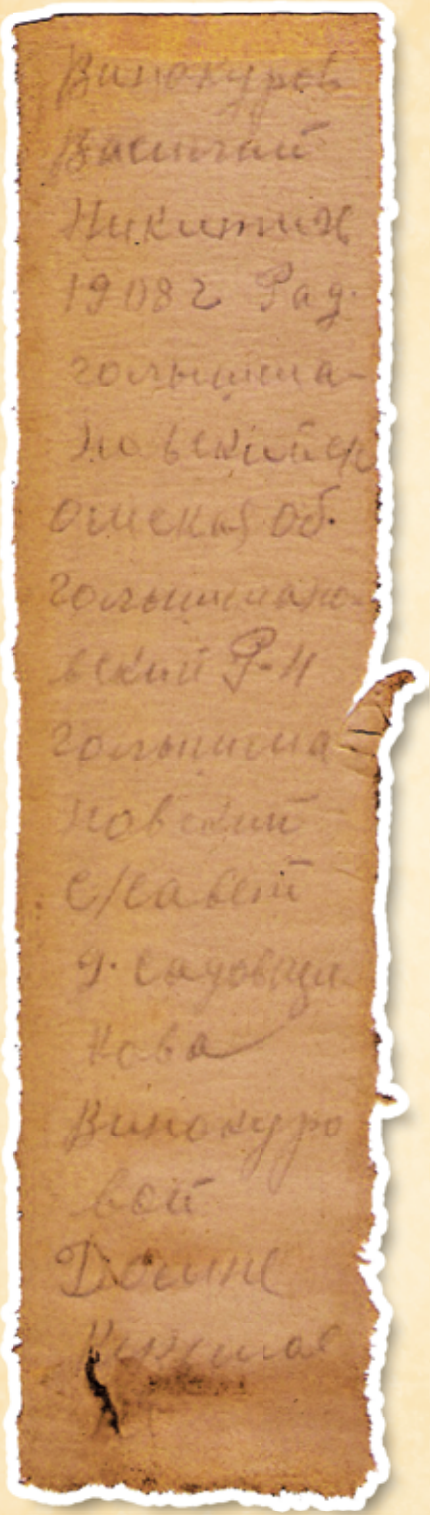 Винокуров
Василий
Никитич
1908 г Рад.
голышма-
новский
омская об.
голышмано-
вский Р-Н
голышма
новский
с/савет
д. садовщи
кова
Винокуро
вой